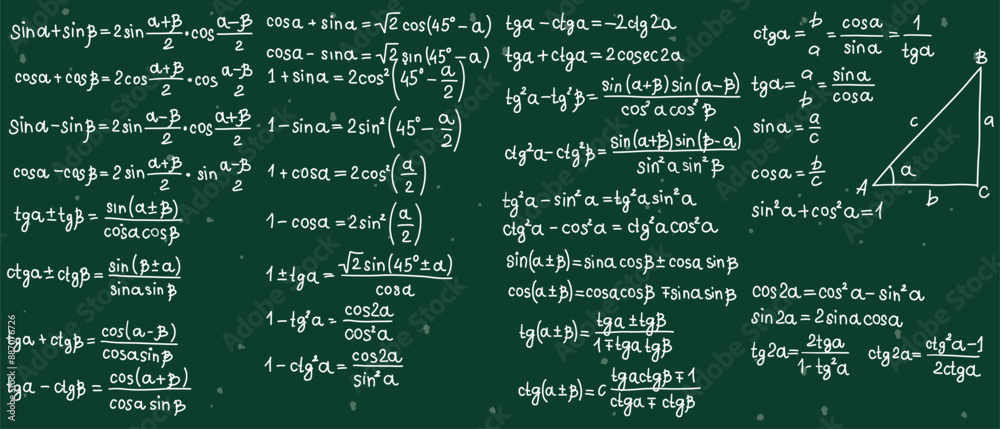 sina+sinβ=2sin (a+β)/2 · cos (a-β)/2
cosa+cosβ=2cos (a+β)/2 · cos (a-β)/2
sina-sinβ=2sin (a-β)/2 · cos (a+β)/2
cosa-cosβ=2sin (a+β)/2 · sin (a-β)/2
tga±tgβ= sin(a±β)/cosacosβ
ctga±ctgβ= sin(β±a)/sinasinβ
ga+ctgβ= cos(a-β)/cosasinβ
ga-ctgβ= cos(a+β)/cosasinβ
cosa+sina=√2cos(45°-a)
cosa-sina=√2sin(45°-a)
1+sina=2cos²(45°-a/2)
1-sina=2sin²(45°-a/2)
1+cosa=2cos²(a/2)
1-cosa=2sin²(a/2)
1±tga= √2sin(45°±a)/cosa
1-tg²a= cos2a/cos²a
1-ctg²a= cos2a/sin²a
tga-ctga=-2ctg2a
tga+ctga=2cosec2a
tg²a-tg²β= sin(a+β)sin(a-β)/cos²acos²β
ctg²a-ctg²β= sin(a+β)sin(β-a)/sin²asin²β
tg²a-sin²a=tg²asin²a
ctg²a-cos²a=ctg²acos²a
sin(a±β)=sinacosβ±cosasinβ
cos(a±β)=cosacosβ∓sinasinβ
tg(a±β)= tga±tgβ/1∓tgatgβ
ctg(a±β)=c tgactgβ∓1/ctga∓ctgβ
ctga= b/a = cosa/sina = 1/tga
tga= a/b = sina/cosa
sina= a/c
cosa= b/c
sin²a+cos²a=1
B
c
a
A
a
b
C
cos2a=cos²a-sin²a
sin2a=2sinacosa
tg2a= 2tga/1-tg²a
ctg2a= ctg²a-1/2ctga
Adobe Stock | #887076726
Adobe Stock